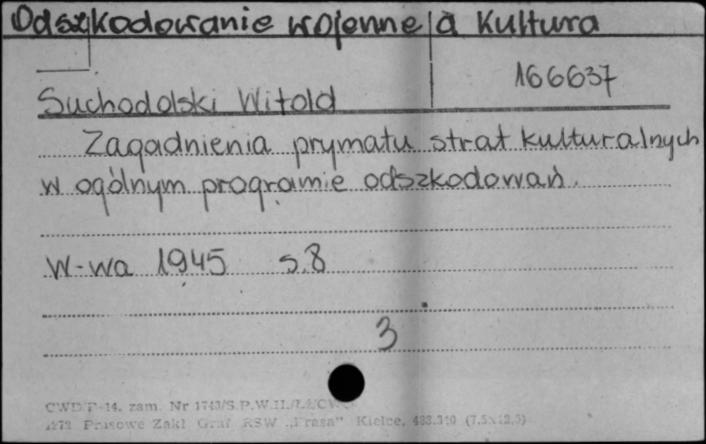 Odszkodowanie wojenne a Kultura
166637
Suchodolski Witold
Zagadnienia prymatu strat kulturalnych
w ogólnym programie odszkodowań.
W-wa 1945 s.8
3
CWD P-14. zam. Nr 1743/S.P.W.II.
Prasowe Zakł Graf RSW „Prasa" Kielce. (7,5x12,5)